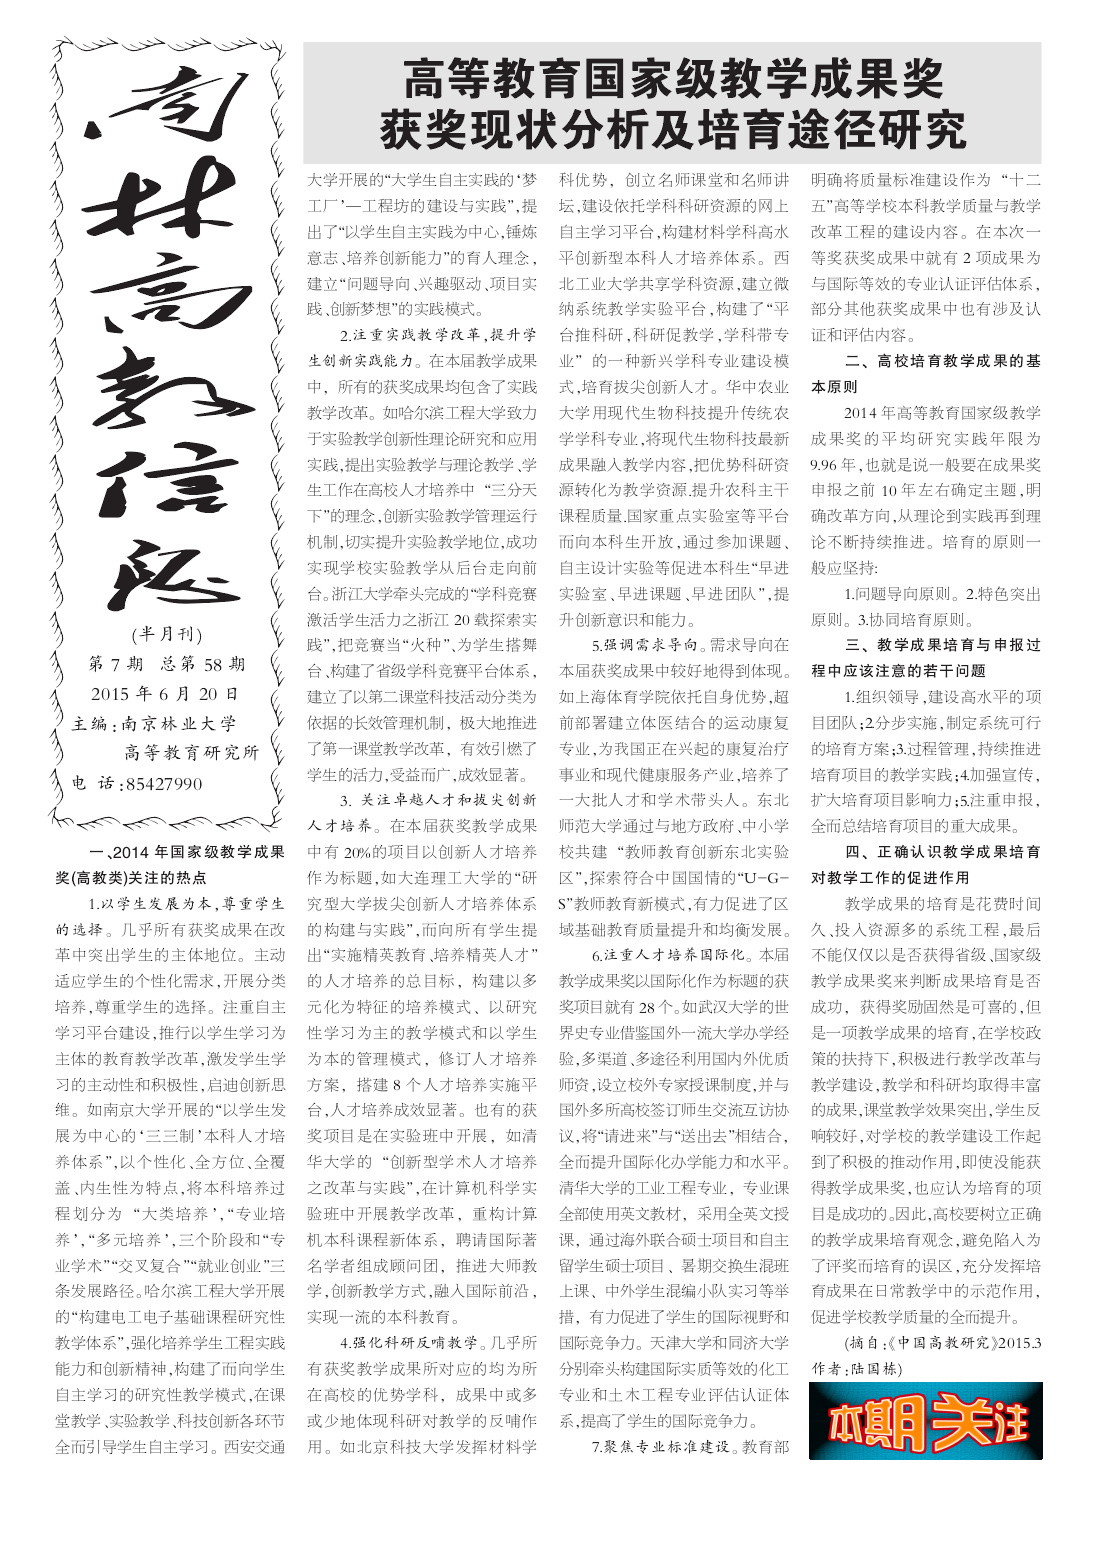 南林高教信息
(半月刊)
第 7 期 总第 58 期
2015 年 6 月 20 日
主编:南京林业大学
高等教育研究所
电 话:85427990
高等教育国家级教学成果奖
获奖现状分析及培育途径研究
一、2014 年国家级教学成果
奖(高教类)关注的热点
1.以学生发展为本,尊重学生
的选择。几乎所有获奖成果在改
革中突出学生的主体地位。主动
适应学生的个性化需求,开展分类
培养,尊重学生的选择。注重自主
学习平台建设,推行以学生学习为
主体的教育教学改革,激发学生学
习的主动性和积极性,启迪创新思
维。如南京大学开展的“以学生发
展为中心的‘三三制’本科人才培
养体系”,以个性化、全方位、全覆
盖、内生性为特点,将本科培养过
程划分为“大类培养’,“专业培
养’,“多元培养’,三个阶段和“专
业学术”“交叉复合”“就业创业”三
条发展路径。哈尔滨工程大学开展
的“构建电工电子基础课程研究性
教学体系”,强化培养学生工程实践
能力和创新精神,构建了而向学生
自主学习的研究性教学模式,在课
堂教学、实验教学、科技创新各环节
全而引导学生自主学习。西安交通
大学开展的“大学生自主实践的‘梦
工厂’—工程坊的建设与实践”,提
出了“以学生自主实践为中心,锤炼
意志、培养创新能力”的育人理念,
建立“问题导向、兴趣驱动、项目实
践、创新梦想”的实践模式。
2.注重实践教学改革,提升学
生创新实践能力。在本届教学成果
中，所有的获奖成果均包含了实践
教学改革。如哈尔滨工程大学致力
于实验教学创新性理论研究和应用
实践,提出实验教学与理论教学、学
生工作在高校人才培养中“三分天
下”的理念,创新实验教学管理运行
机制,切实提升实验教学地位,成功
实现学校实验教学从后台走向前
台。浙江大学牵头完成的“学科竞赛
激活学生活力之浙江 20 载探索实
践”,把竞赛当“火种”、为学生搭舞
台、构建了省级学科竞赛平台体系,
建立了以第二课堂科技活动分类为
依据的长效管理机制，极大地推进
了第一课堂教学改革，有效引燃了
学生的活力,受益而广,成效显著。
3. 关注卓越人才和拔尖创新
人才培养。在本届获奖教学成果
中有 20%的项目以创新人才培养
作为标题,如大连理工大学的“研
究型大学拔尖创新人才培养体系
的构建与实践”,而向所有学生提
出“实施精英教育、培养精英人才”
的人才培养的总目标，构建以多
元化为特征的培养模式、以研究
性学习为主的教学模式和以学生
为本的管理模式，修订人才培养
方案，搭建 8 个人才培养实施平
台,人才培养成效显著。也有的获
奖项目是在实验班中开展，如清
华大学的“创新型学术人才培养
之改革与实践”,在计算机科学实
验班中开展教学改革，重构计算
机本科课程新体系，聘请国际著
名学者组成顾问团，推进大师教
学,创新教学方式,融入国际前沿,
实现一流的本科教育。
4.强化科研反哺教学。几乎所
有获奖教学成果所对应的均为所
在高校的优势学科，成果中或多
或少地体现科研对教学的反哺作
用。如北京科技大学发挥材料学
科优势，创立名师课堂和名师讲
坛,建设依托学科科研资源的网上
自主学习平台,构建材料学科高水
平创新型本科人才培养体系。西
北工业大学共享学科资源,建立微
纳系统教学实验平台,构建了“平
台推科研,科研促教学,学科带专
业”的一种新兴学科专业建设模
式,培育拔尖创新人才。华中农业
大学用现代生物科技提升传统农
学学科专业,将现代生物科技最新
成果融入教学内容,把优势科研资
源转化为教学资源.提升农科主干
课程质量.国家重点实验室等平台
而向本科生开放,通过参加课题、
自主设计实验等促进本科生“早进
实验室、早进课题、早进团队”,提
升创新意识和能力。
5.强调需求导向。需求导向在
本届获奖成果中较好地得到体现。
如上海体育学院依托自身优势,超
前部署建立体医结合的运动康复
专业,为我国正在兴起的康复治疗
事业和现代健康服务产业,培养了
一大批人才和学术带头人。东北
师范大学通过与地方政府、中小学
校共建“教师教育创新东北实验
区”,探索符合中国国情的“U-G-
S”教师教育新模式,有力促进了区
域基础教育质量提升和均衡发展。
6.注重人才培养国际化。本届
教学成果奖以国际化作为标题的获
奖项目就有 28 个。如武汉大学的世
界史专业借鉴国外一流大学办学经
验,多渠道、多途径利用国内外优质
师资,设立校外专家授课制度,并与
国外多所高校签订师生交流互访协
议,将“请进来”与“送出去”相结合,
全而提升国际化办学能力和水平。
清华大学的工业工程专业，专业课
全部使用英文教材，采用全英文授
课，通过海外联合硕士项目和自主
留学生硕士项目、暑期交换生混班
上课、中外学生混编小队实习等举
措，有力促进了学生的国际视野和
国际竞争力。天津大学和同济大学
分别牵头构建国际实质等效的化工
专业和土木工程专业评估认证体
系,提高了学生的国际竞争力。
7.聚焦专业标准建设。教育部
明确将质量标准建设作为“十二
五”高等学校本科教学质量与教学
改革工程的建设内容。在本次一
等奖获奖成果中就有 2 项成果为
与国际等效的专业认证评估体系,
部分其他获奖成果中也有涉及认
证和评估内容。
二、高校培育教学成果的基
本原则
2014 年高等教育国家级教学
成果奖的平均研究实践年限为
9.96 年,也就是说一般要在成果奖
申报之前 10 年左右确定主题,明
确改革方向,从理论到实践再到理
论不断持续推进。培育的原则一
般应坚持:
1.问题导向原则。2.特色突出
原则。3.协同培育原则。
三、教学成果培育与申报过
程中应该注意的若干问题
1.组织领导,建设高水平的项
目团队;2.分步实施,制定系统可行
的培育方案;3.过程管理,持续推进
培育项目的教学实践;4.加强宣传,
扩大培育项目影响力;5.注重申报,
全而总结培育项目的重大成果。
四、正确认识教学成果培育
对教学工作的促进作用
教学成果的培育是花费时间
久、投入资源多的系统工程,最后
不能仅仅以是否获得省级、国家级
教学成果奖来判断成果培育是否
成功，获得奖励固然是可喜的,但
是一项教学成果的培育,在学校政
策的扶持下,积极进行教学改革与
教学建设,教学和科研均取得丰富
的成果,课堂教学效果突出,学生反
响较好,对学校的教学建设工作起
到了积极的推动作用,即使没能获
得教学成果奖,也应认为培育的项
目是成功的。因此,高校要树立正确
的教学成果培育观念,避免陷人为
了评奖而培育的误区,充分发挥培
育成果在日常教学中的示范作用,
促进学校教学质量的全而提升。
(摘自:《中国高教研究》2015.3
作者:陆国栋)
本期关注